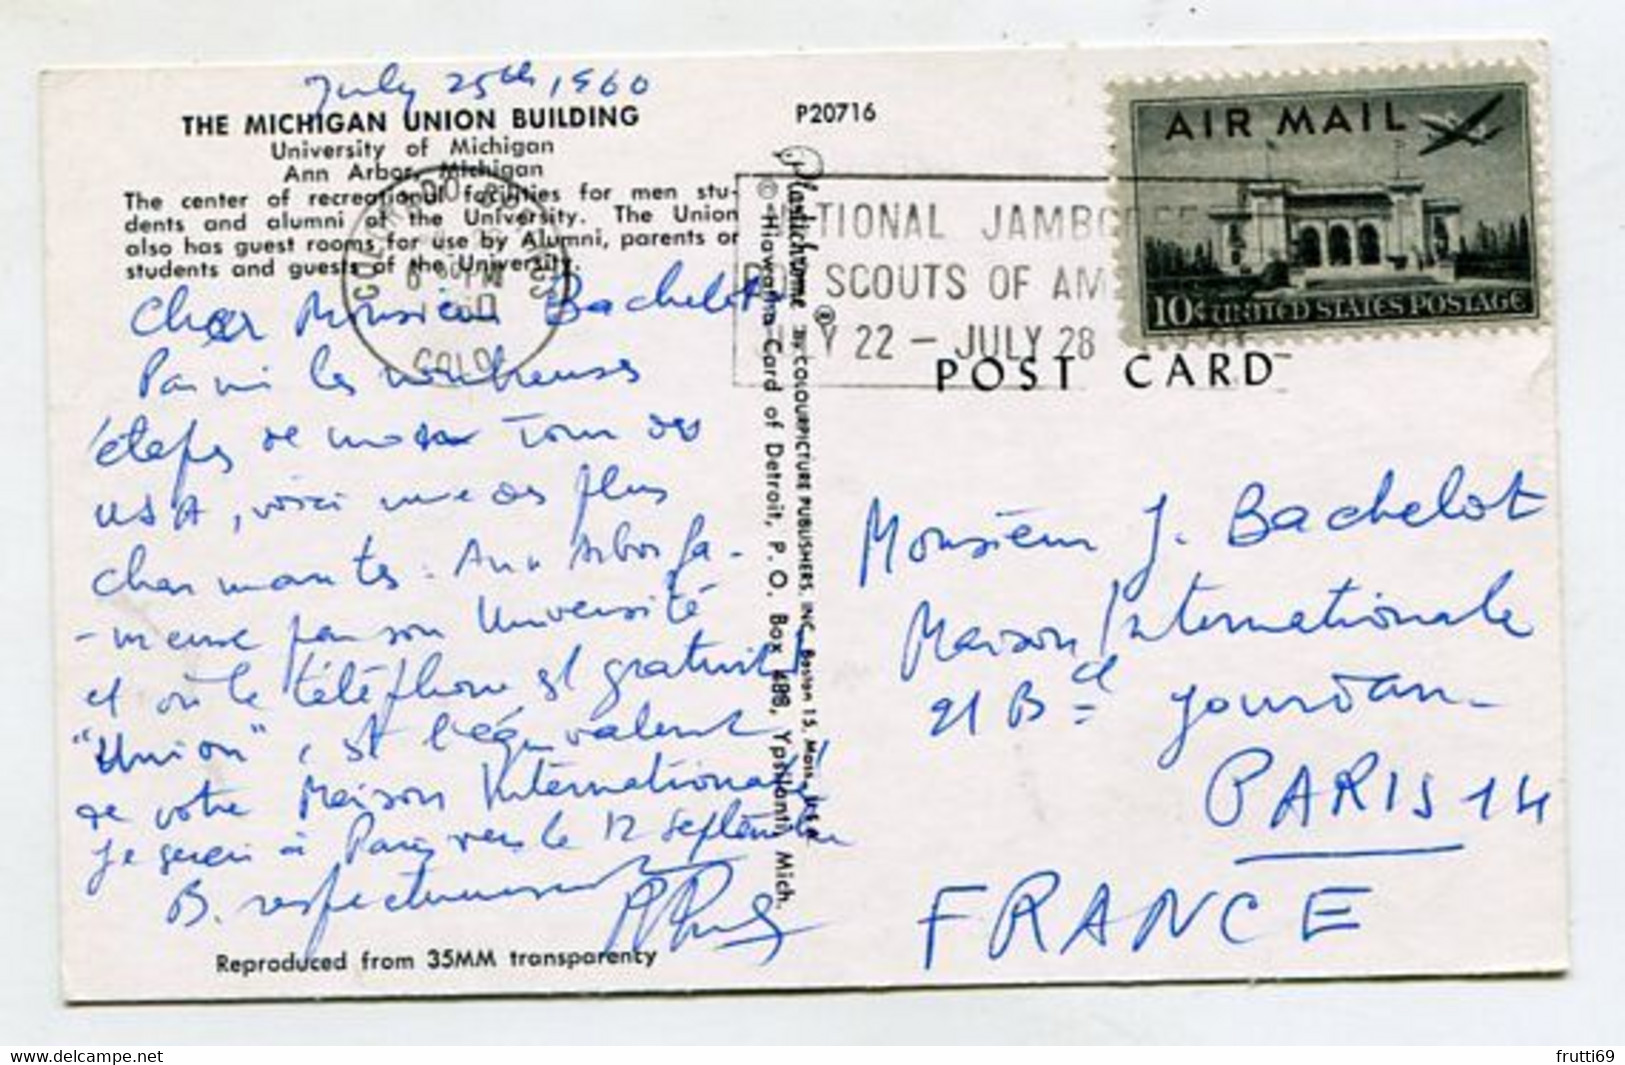 July 25th 1960
THE MICHIGAN UNION BUILDING
University of Michigan
Ann Arbor, Michigan
The center of recreational facilities for men stu-
dents and alumni of the University. The Union
also has guest rooms for use by Alumni, parents or
students and guests of the University.
Cher Monsieur Bachelot
Parmi les nombreuses
étapes de mon tour des
USA, voici une des plus
charmantes. Ann Arbor fa-
-meuse par son Université
et où le téléphone est gratuit!
"Union", est l'équivalent
de votre Maison Internationale!
Je serai à Paris vers le 12 septembre
B. respectueusement
Reproduced from 35MM transparency
P20716
Plastichrome ® by COLOURPICTURE PUBLISHERS, INC. Boston 15, Mass., U.S.A.
© Hiawatha Card of Detroit, P. O. Box 488, Ypsilanti, Mich.
COLORADO SPRINGS
PM
COLO.
TIONAL JAMBOREE
BOY SCOUTS OF AM
Y 22 - JULY 28
AIR MAIL
10¢ UNITED STATES POSTAGE
POST CARD
Monsieur J. Bachelot
Maison Internationale
21 Bd Jourdan
PARIS 14
FRANCE
delcampe.net
frutti69